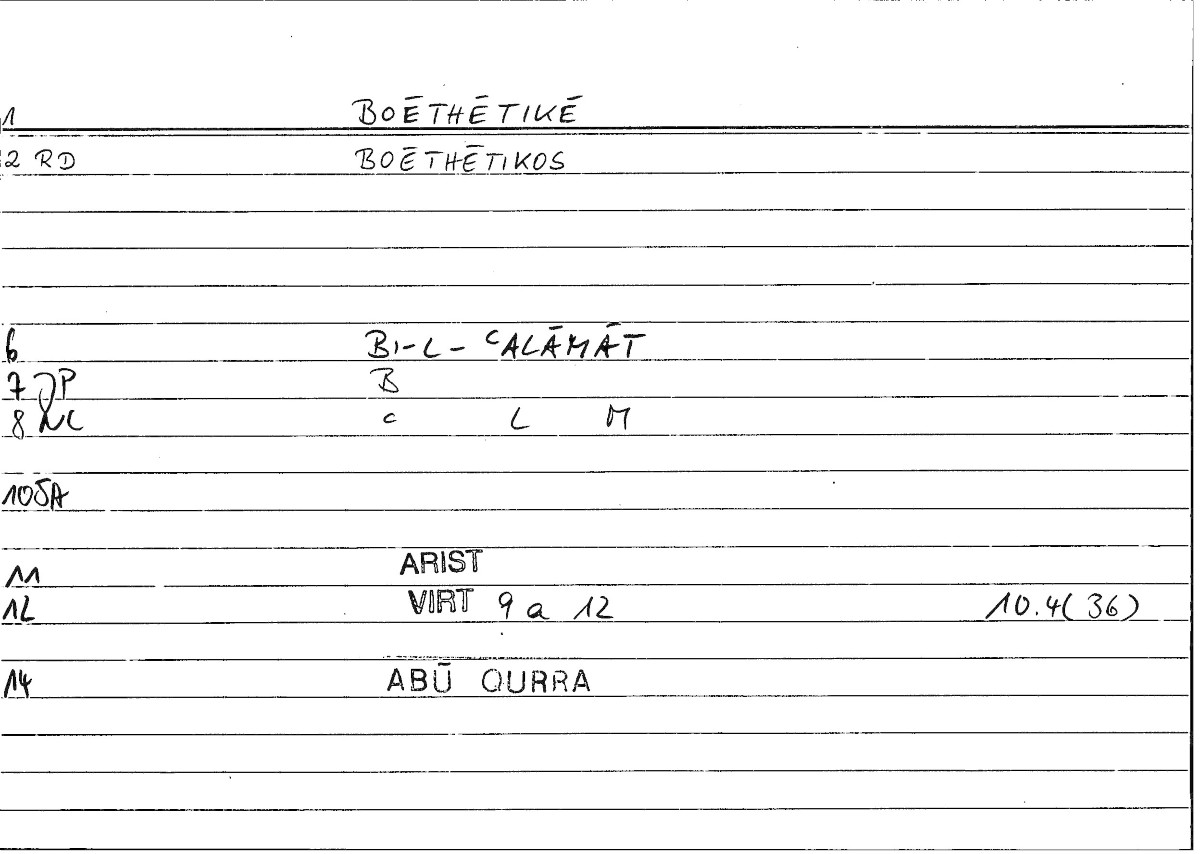 1 BOĒTHĒTIKĒ
2 RD BOĒTHĒTIKOS
6 BI-L-ᶜALĀMĀT
7 JP B
8 NC c L M
10 SA
11 ARIST
12 VIRT 9 a 12 10.4(36)
14 ABŪ QURRA